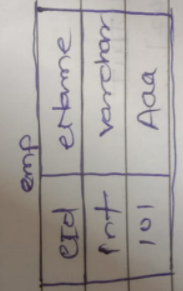 emp
eId eName
int varchar
101 Aaa